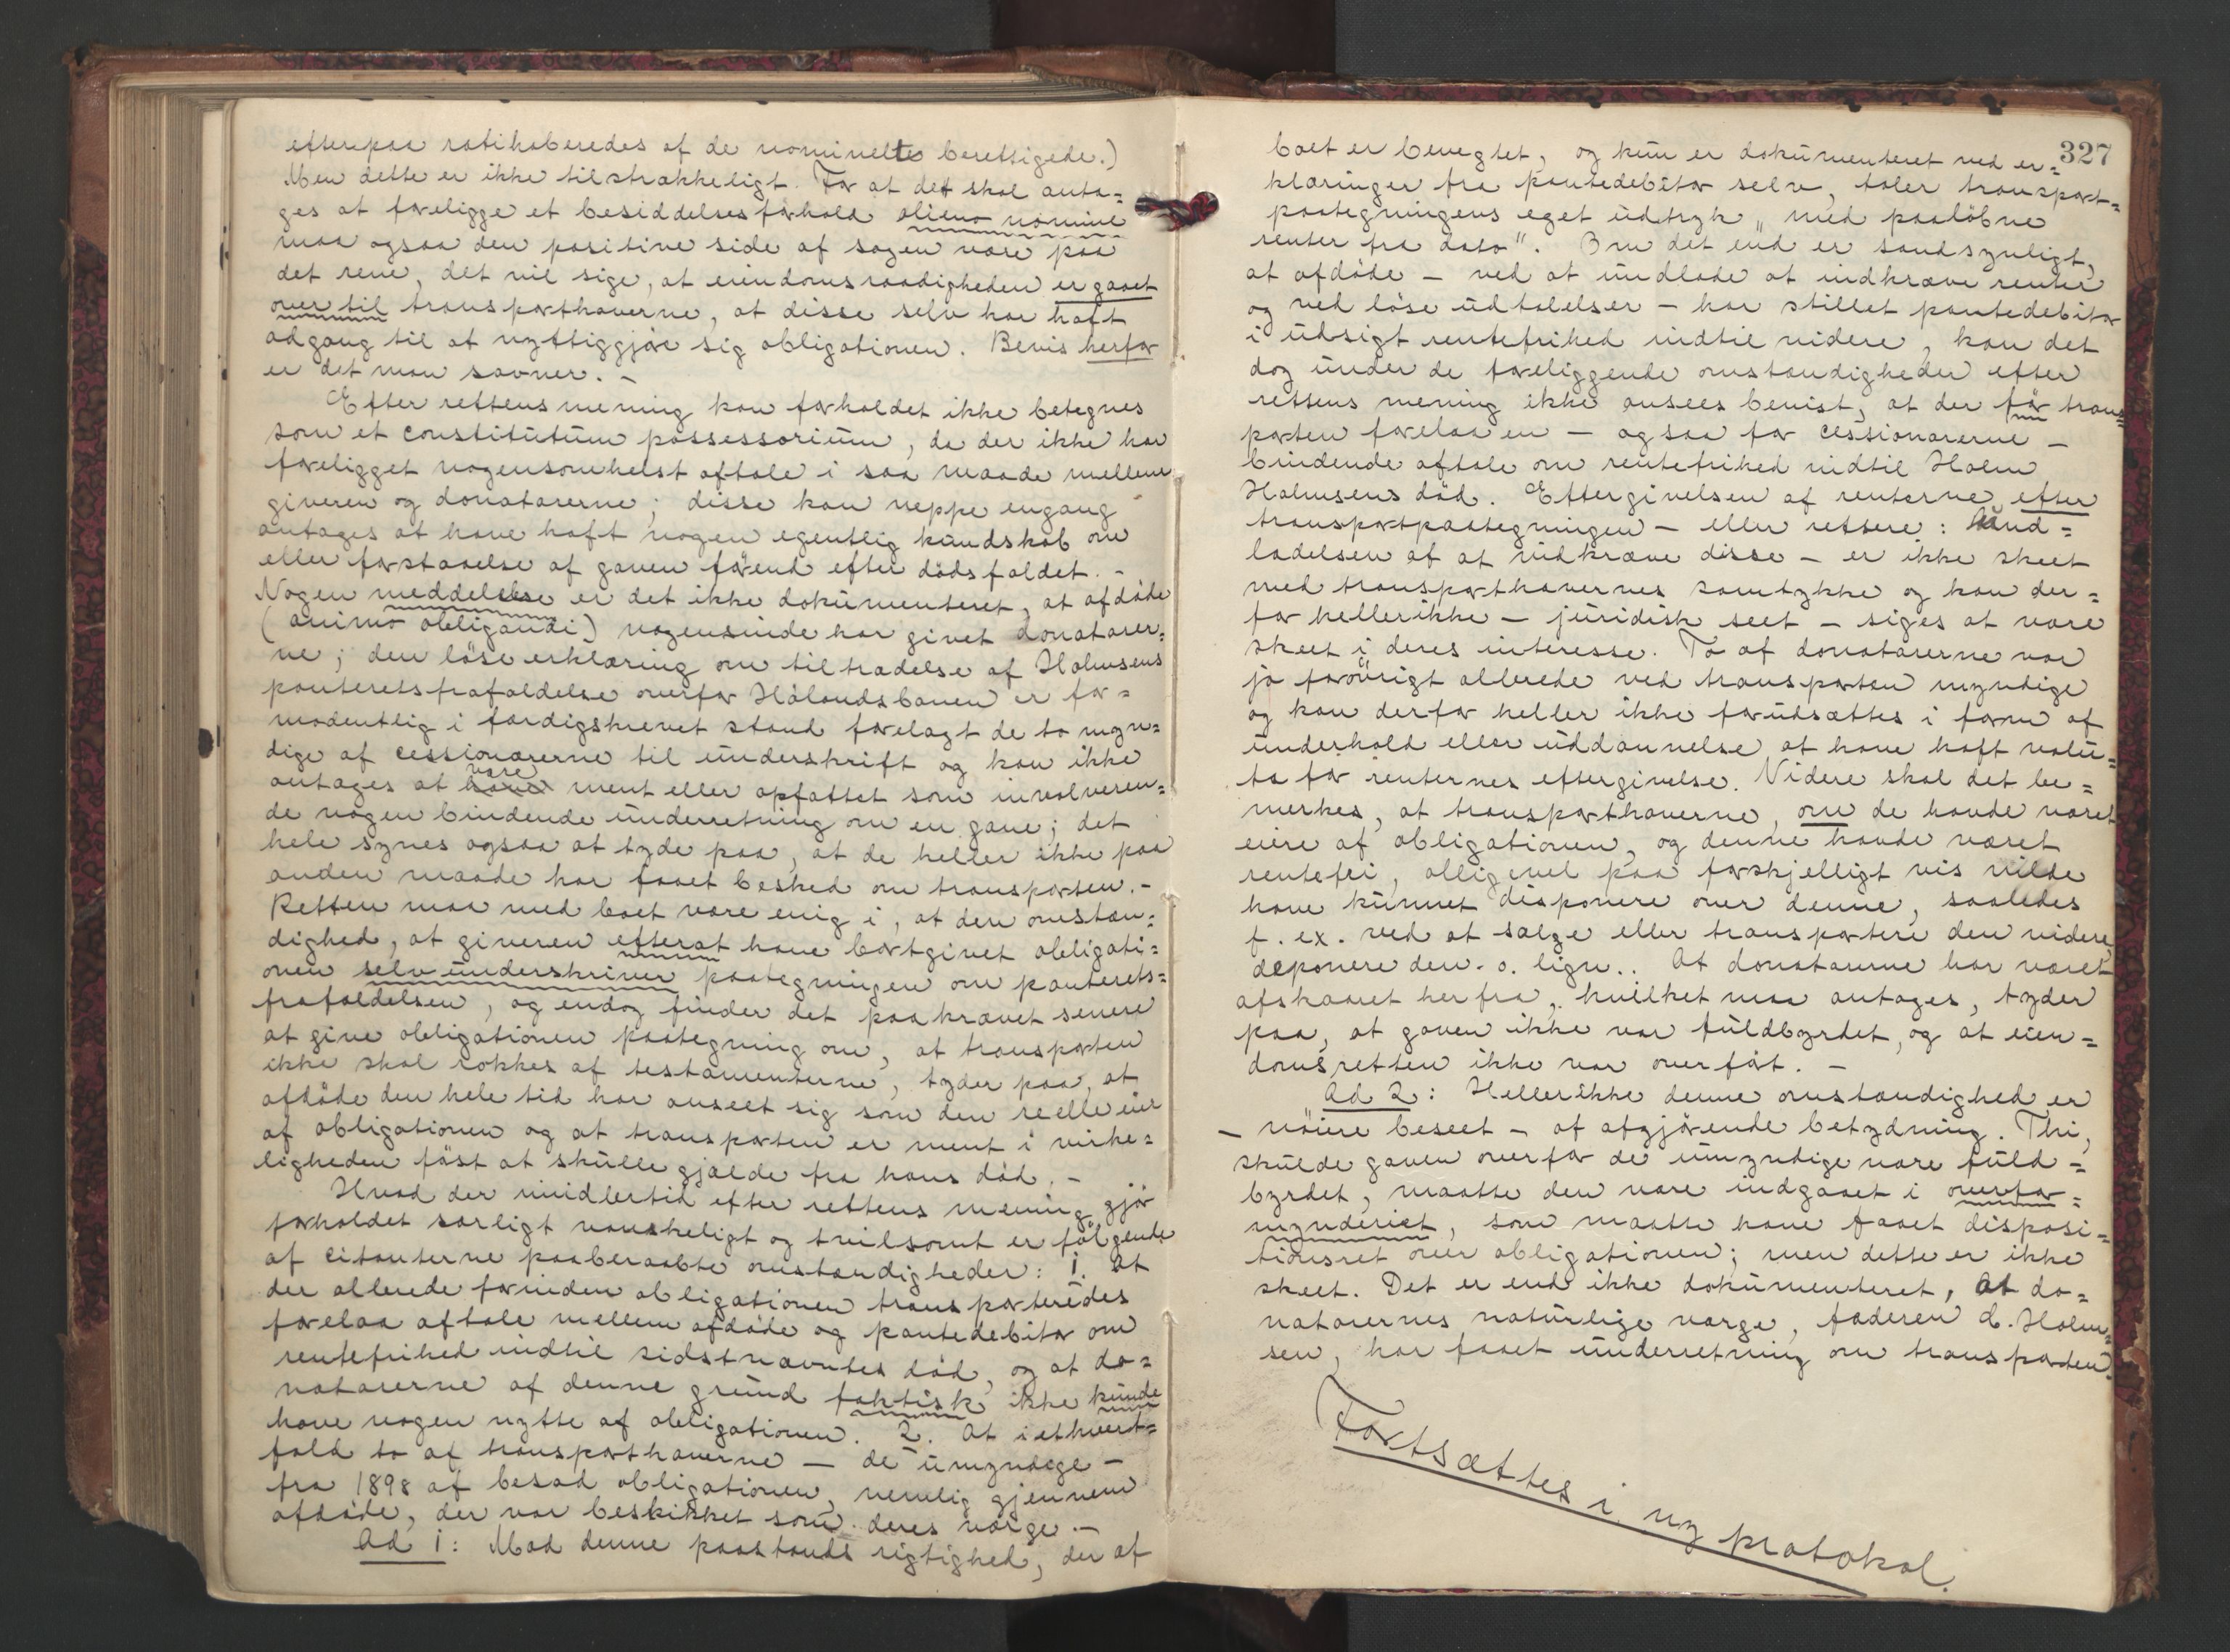 efterpaa ratihaberedes af de nominelte berettigede.)
Men dette er ikke tilstrækkeligt. For at det skal anta=
ges at foreligge et besiddelsesforhold alieno nomine
maa ogsaa den positive side af sagen være paa
det rene, det vil sige, at eiendomsraadigheden er gaaet
over til transporthaverne, at disse selv har haft
adgang til at nyttiggjøre sig obligationen. Bevis herfor
er det man savner. –
Efter rettens mening kan forholdet ikke betegnes
som et constitutum possessorium, da der ikke har
foreligget nogensomhelst aftale i saa maade mellem
giveren og donatarerne; disse kan neppe engang
antages at have haft nogen egentlig kundskab om
eller forstaaelse af gaven førend efter dødsfaldet. –
Nogen meddelelse er det ikke dokumenteret, at afdøde
(animo obligandi) nogensinde har givet donatarer=
ne; den løse erklæring om tiltrædelse af Holmsens
panteretsfrafaldelse overfor Hølandsbanen er for=
modentlig i færdigskrevet stand forelagt de to myn=
dige af cessionarerne til underskrift og kan ikke
antages at være ment eller opfattet som involveren=
de nogen bindende underretning om en gave; det
hele synes ogsaa at tyde paa, at de heller ikke paa
anden maade har faaet besked om transporten. –
Retten maa med boet være enig i, at den omstæn=
dighed, at giveren efterat have bortgivet obligati=
onen selv underskriver paategningen om panterets=
frafaldelsen, og endog finder det paakrævet senere
at give obligationen paategning om, at transporten
ikke skal rokkes af testamenterne, tyder paa, at
afdøde den hele tid har anseet sig som den reelle eier
af obligationen og at transporten er ment i virke=
ligheden først at skulle gjælde fra hans død. –
Hvad der imidlertid efter rettens mening gjør
forholdet særligt vanskeligt og tvilsomt er følgende
af citanterne paaberaabte omstændigheder: 1. At
der allerede forinden obligationen transporteredes
forelaa aftale mellem afdøde og pantedebitor om
rentefrihed indtil sidstnævntes død, og at do=
natarerne af denne grund faktisk ikke kunde
have nogen nytte af obligationen. 2. At iethvert=
fald to af transporthaverne – de umyndige –
fra 1898 af besad obligationen, nemlig gjennem
afdøde, der var beskikket som deres værge. –
Ad 1: Mod denne paastands rigtighed, der af
327
boet er benegtet, og kun er dokumenteret ved er=
klæringer fra pantedebitor selv, taler transport=
paategningens eget udtryk „med paaløbne
renter fra dato“. Om det end er sandsynligt,
at afdøde – ved at undlade at indkræve renter
og ved løse udtalelser – har stillet pantedebitor
i udsigt rentefrihed indtil videre, kan det
dog under de foreliggende omstændigheder efter
rettens mening ikke ansees bevist, at der før trans=
porten forelaa en – ogsaa for cessionarerne –
bindende aftale om rentefrihed indtil Holm
Holmsens død. Eftergivelsen af renterne efter
transportpaategningen – eller rettere: Und=
ladelsen af at indkræve disse – er ikke skeet
med transporthavernes samtykke og kan der=
for hellerikke – juridisk seet – siges at være
skeet i deres interesse. To af donatarerne var
jo forøvrigt allerede ved transporten myndige
og kan derfor heller ikke forudsættes i form af
underhold eller uddannelse at have haft valu=
ta for renternes eftergivelse. Videre skal det be=
merkes, at transporthaverne, om de havde været
eiere af obligationen, og denne havde været
rentefri, alligevel paa forskjelligt vis vilde
have kunnet disponere over denne, saaledes
f. ex. ved at sælge eller transportere den videre
deponere den. o. lign.. At donatarerne har været
afskaaret herfra, hvilket maa antages, tyder
paa, at gaven ikke var fuldbyrdet, og at eien=
domsretten ikke var overført. –
Ad 2: Hellerikke denne omstændighed er
– nøiere beseet – af afgjørende betydning. Thi,
skulde gaven overfor de umyndige være fuld=
byrdet, maatte den være indgaaet i overfor=
mynderiet, som maatte have faaet disposi=
tionsret over obligationen; men dette er ikke
skeet. Det er end ikke dokumenteret, At do=
natarernes naturlige værge, faderen d. Holm=
sen, har faaet underretning om transporten.
Fortsættes i ny protokol.